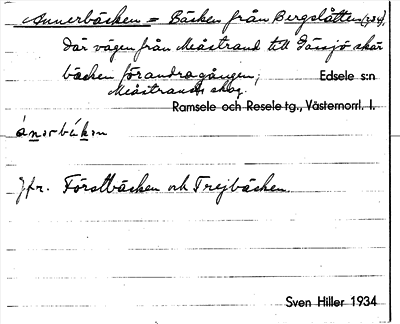 Annerbäcken = Bäcken från Bergslåtten
där vägen från Meåstrand till Tärsjö skär
bäcken för andra gången; Edsele s:n
Meåstrands skog.
Ramsele och Resele tg., Västernorrl. l.
ánərbùkən
Jfr. Förstbäcken och Trejbäcken
Sven Hiller 1934